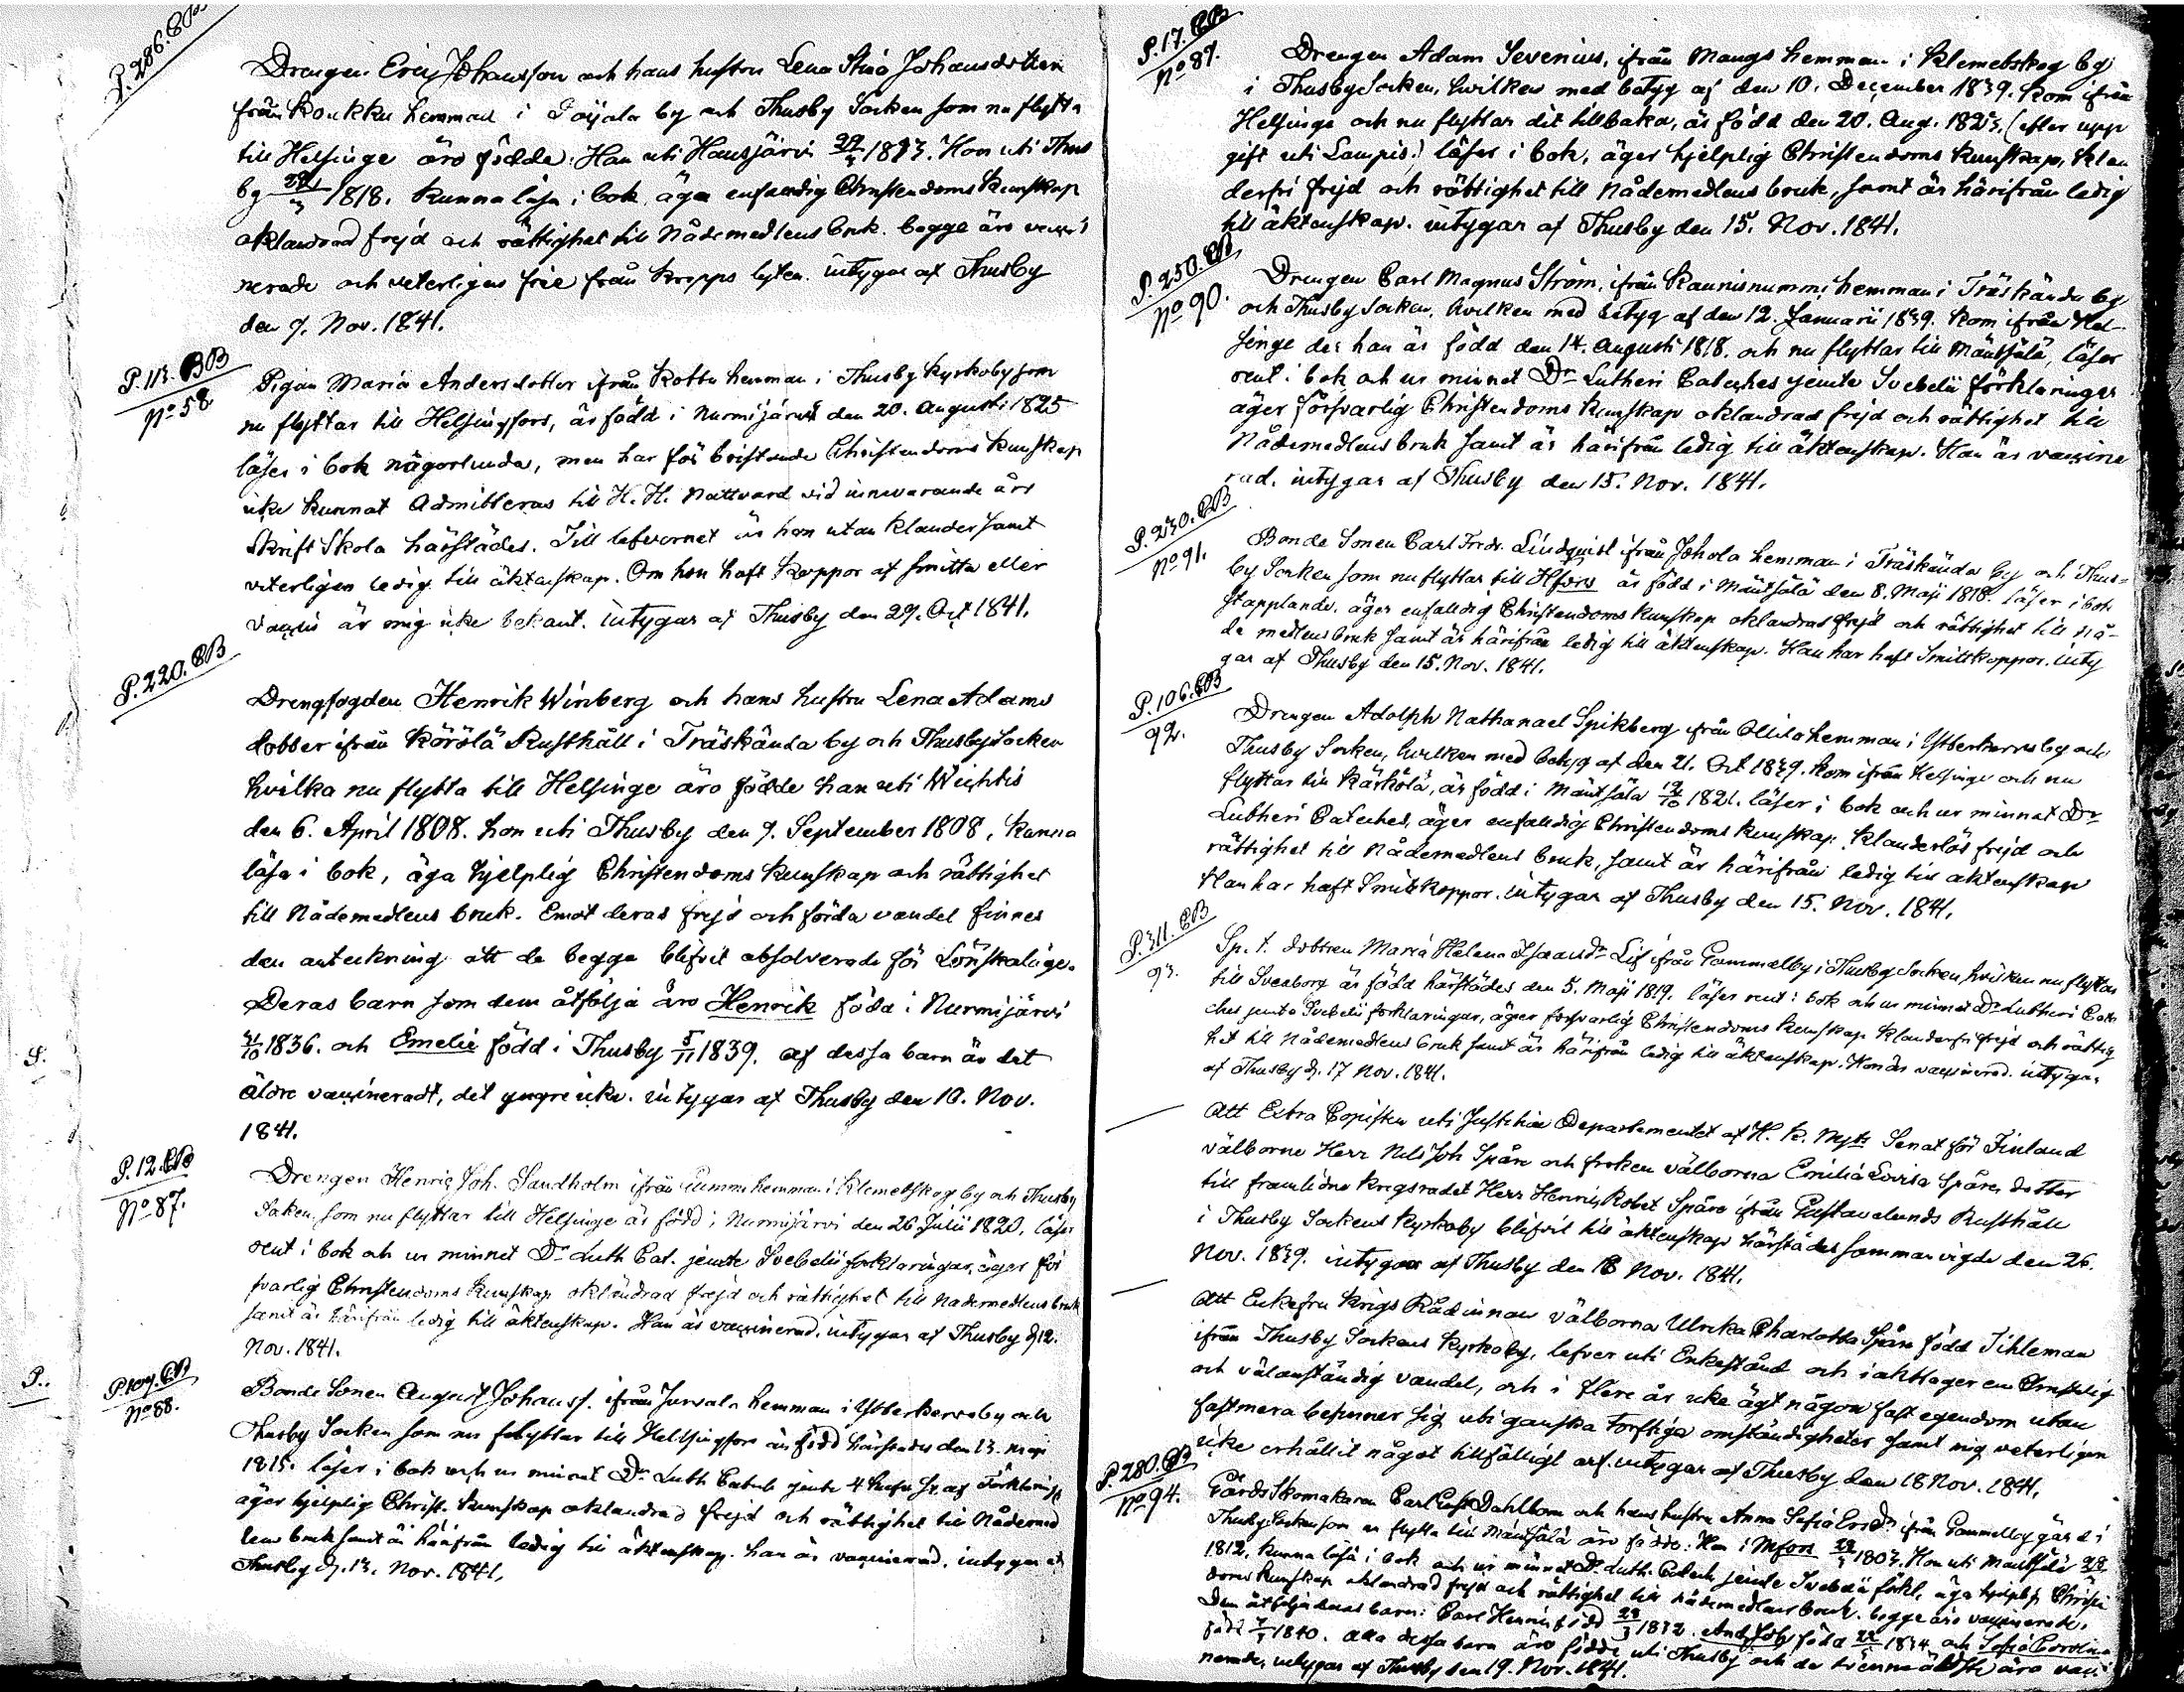 P. 286. CB
Drengen Eric Johansson och hans hustru Lena Stina Johansdotter
från Koukku hemman i Paijala by och Thusby Socken som nu flytta
till Helsinge äro födde: Han uti Hausjärvi 1813. Hon uti Thus
by 1818. kunna läsa i bok, äga enfaldig Christendoms kunskap
oklandrad frejd och rättighet till Nådemedlens bruk. begge äro vacci
nerade och veterligen frie från kropps lyten. intygar af Thusby
den 7. Nov. 1841.
P. 113. BB
No 58
Pigan Maria Andersdotter ifrån Rotta hemman i Thusby Kyrkoby som
nu flyttar till Helsingfors, är född i Nurmijärvi den 20. Augusti 1825
läser i bok någorlunda, men har för bristande Christendoms kunskap
icke kunnat Admitteras till H. H. Nattvard vid innevarande års
Skrift Skola härstädes. Till lefvernet är hon utan klander samt
veterligen ledig till äktenskap. Om hon haft koppor af smitta eller
vaccin är mig icke bekant. intygar af Thusby den 29. Oct 1841.
P. 220. CB
Drengfogden Henrik Winberg och hans hustru Lena Adams
dotter ifrån Körölä Rusthåll i Träskända by och Thusby Socken
hvilka nu flytta till Helsinge äro födde han uti Wichtis
den 6. April 1808. hon uti Thusby den 7. September 1808, kunna
läsa i bok, äga hjelplig Christendoms kunskap och rättighet
till Nådemedlens bruk. Emot deras frejd och förda vandel finnes
den anteckning att de begge blifvit absolverade för Lönskaläge.
Deras barn som dem åtfölja äro Henrik född i Nurmijärvi
31/10 1836. och Emelie född i Thusby 5/11 1839. af dessa barn är det
äldre vaccineradt, det yngre icke. intygar af Thusby den 10. Nov.
1841.
P. 12. CB
No 87.
Drengen Henric Joh. Sandholm ifrån Gumm hemman i Klemetskog by och Thusby
Socken, som nu flyttar till Helsinge är född i Nurmijärvi den 26 Julii 1820. läser
rent i bok och ur minnet Dr Luth Cat. jemte Svebelii förklaringar, äger för
svarlig Christendoms kunskap oklandrad frejd och rättighet till Nademedlens bruk
samt är härifrån ledig till äktenskap. Han är vaccinerad. intygar af Thusby d 12.
Nov. 1841.
P. 107. CB
No 88.
Bonde Sonen August Johanss. ifrån Jurvala hemman i Ytterkervoby och
Thusby Socken som nu flyttar till Helsingfors är född härstädes den 13. maji
1815. läser i bok och ur minnet Dr Luth Catech jemte 4 hufv. st. af Förklaring
äger hjelplig Christ. kunskap oklandrad frejd och rättighet till Nådemed
lens bruk samt är härifrån ledig till äktenskap. han är vaccinerad. intygar af
Thusby d. 13. Nov. 1841.
P. 17. CB
No 89.
Drengen Adam Sevenius, ifrån Maugs hemman i Klemetskog by
i Thusby Socken, hvilken med betyg af den 10. December 1839. kom ifrån
Helsinge och nu flyttar dit tillbaka, är född den 20. Aug. 1823. (efter upp
gift uti Lampis.) läser i bok, äger hjelplig Christendoms kunskap, klan
derfri frejd och rättighet till Nådemedlens bruk, samt är härifrån ledig
till äktenskap. intygar af Thusby den 15. Nov. 1841.
P. 250. CB
No 90.
Drengen Carl Magnus Ström, ifrån Kaunisnummi hemman i Träskända by
och Thusby Socken, hvilken med betyg af den 12. Januarii 1839. kom ifrån Hel-
singe der han är född den 14. Augusti 1818. och nu flyttar till Mäntsälä, läser
rent i bok och ur minnet Dr Lutheri Cateches jemte Svebelii förklaringar
äger försvarlig Christendoms kunskap oklandrad frejd och rättighet till
Nådemedlens bruk samt är härifrån ledig till äktenskap. Han är vaccine
rad. intygar af Thusby den 15. Nov. 1841.
P. 230. CB
No 91.
Bonde Sonen Carl Fredr. Lindqvist ifrån Johola hemman i Träskända by och Thus=
by Socken som nu flyttar till Hfors är född i Mäntsälä den 8. Maji 1818. läser i bok
stapplande, äger enfaldig Christendoms kunskap oklandrad frejd och rättighet till nå-
de medlens bruk samt är härifrån ledig till äktenskap. Han har haft Smittkoppor. inty
gar af Thusby den 15. Nov. 1841.
P. 106. CB
92.
Drengen Adolph Nathanael Spikberg ifrån Ollila hemman i Ytterkervoby och
Thusby Socken, hvilken med betyg af den 21. Oct 1839. kom ifrån Helsinge och nu
flyttar till Kärkölä, är född i Mäntsälä 12/10 1821. läser i bok och ur minnet Dr
Lutheri Cateches, äger enfaldig Christendoms kunskap. klanderlös frejd och
rättighet till Nådemedlens bruk, samt är härifrån ledig till äktenskap
Han har haft Smitkoppor. intygar af Thusby den 15. Nov. 1841.
P. 311. CB
93.
Sp. t. dottren Maria Helena Isaacsdr Lif ifrån Gammelby i Thusby Socken, hvilken nu flyttar
till Sveaborg är född härstädes den 5. Maji 1819. läser rent i bok och ur minnet Dr Lutheri Cate
ches jemte Svebelii förklaringar, äger försvarlig Christendoms kunskap klanderfri frejd och rättig
het till Nådemedlens bruk samt är härifrån ledig till äktenskap. Hon är vaccinerad. intygar
af Thusby d. 17 Nov. 1841.
Att Extra Copisten uti Justitiæ Departementet af H. K. Mjts Senat för Finland
välborne Herr Nils Joh Spåre och fröken välborna Emilia Lovisa Spåre, dotter
till framlidne krigsradet Herr Henric Robet Spåre ifrån Gustavelunds Rusthåll
i Thusby Sockens Kyrkoby blifvit till äktenskap härstädes sammanvigde den 26.
Nov. 1839. intygar af Thusby den 18 Nov. 1841.
Att Enkefru Krigs Rådinnan välborna Ulrika Charlotta Spåre född Tihleman
ifrån Thusby Sockens Kyrkoby, lefver uti Enkestånd och iakttager en Christelig
och välanständig vandel, och i flere år icke ägt någon fast egendom utan
fastmera befinner sig uti ganska torftiga omständigheter samt mig veterligen
icke erhållit något tillfälligt arf. intygar af Thusby den 18 Nov. 1841.
P. 280. CB
No 94.
Gårds Skomakaren Carl Gust Dahlbom och hans hustru Anna Sofia Ersdr ifrån Gammelby gård i
Thusby Socken som nu flytta till Mäntsälä äro födde: Han i 1803. Hon uti Mäntsälä
1812, kunna läsa i bok och ur minnet Dr Luth. Catech jemte Svebelii förkl. äga hjelplig Christen
doms kunskap oklandrad frejd och rättighet till nådemedlens bruk. begge äro vaccinerade.
Dem åtfölja deras barn: Carl Henric född 1832. And Joh född 1834 och Sofia Carolina
född 1840. alla dessa barn äro födde uti Thusby och de tvenne äldste äro vacci
nerade, intygar af Thusby den 19. Nov. 1841.